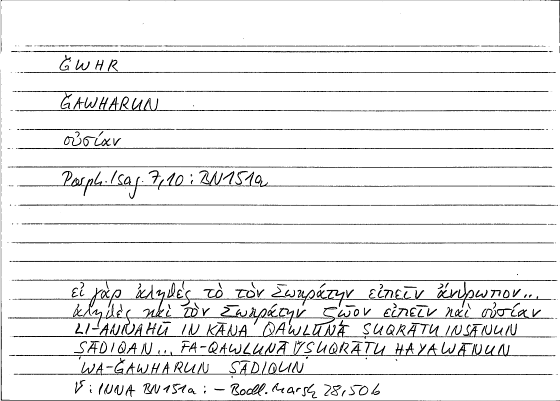 ǦWHR
ǦAWHARUN
οὐσίαν
Porph. Isag. 7,10 : BN 151a
εἰ γὰρ ἀληθὲς τὸ τὸν Σωκράτην εἰπεῖν ἄνθρωπον...
ἀληθὲς καὶ τὸν Σωκράτην ζῷον εἰπεῖν καὶ οὐσίαν
LI-ANNAHŪ IN KĀNA QAWLUNĀ SUQRĀṬU INSĀNUN
ṢĀDIQAN... FA-QAWLUNĀ ∇SUQRĀṬU ḤAYAWĀNUN
WA-ǦAWHARUN ṢĀDIQUN
∇: INNA BN 151a : – Bodl. Marsh 28, 50b